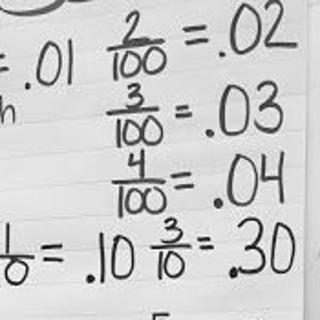 = .01 2/100 = .02
h 3/100 = .03
4/100 = .04
1/10 = .10 3/10 = .30